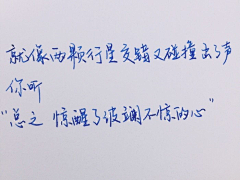 就像两颗行星交错又碰撞出了声
你听
“总之 惊醒了波澜不惊的心”